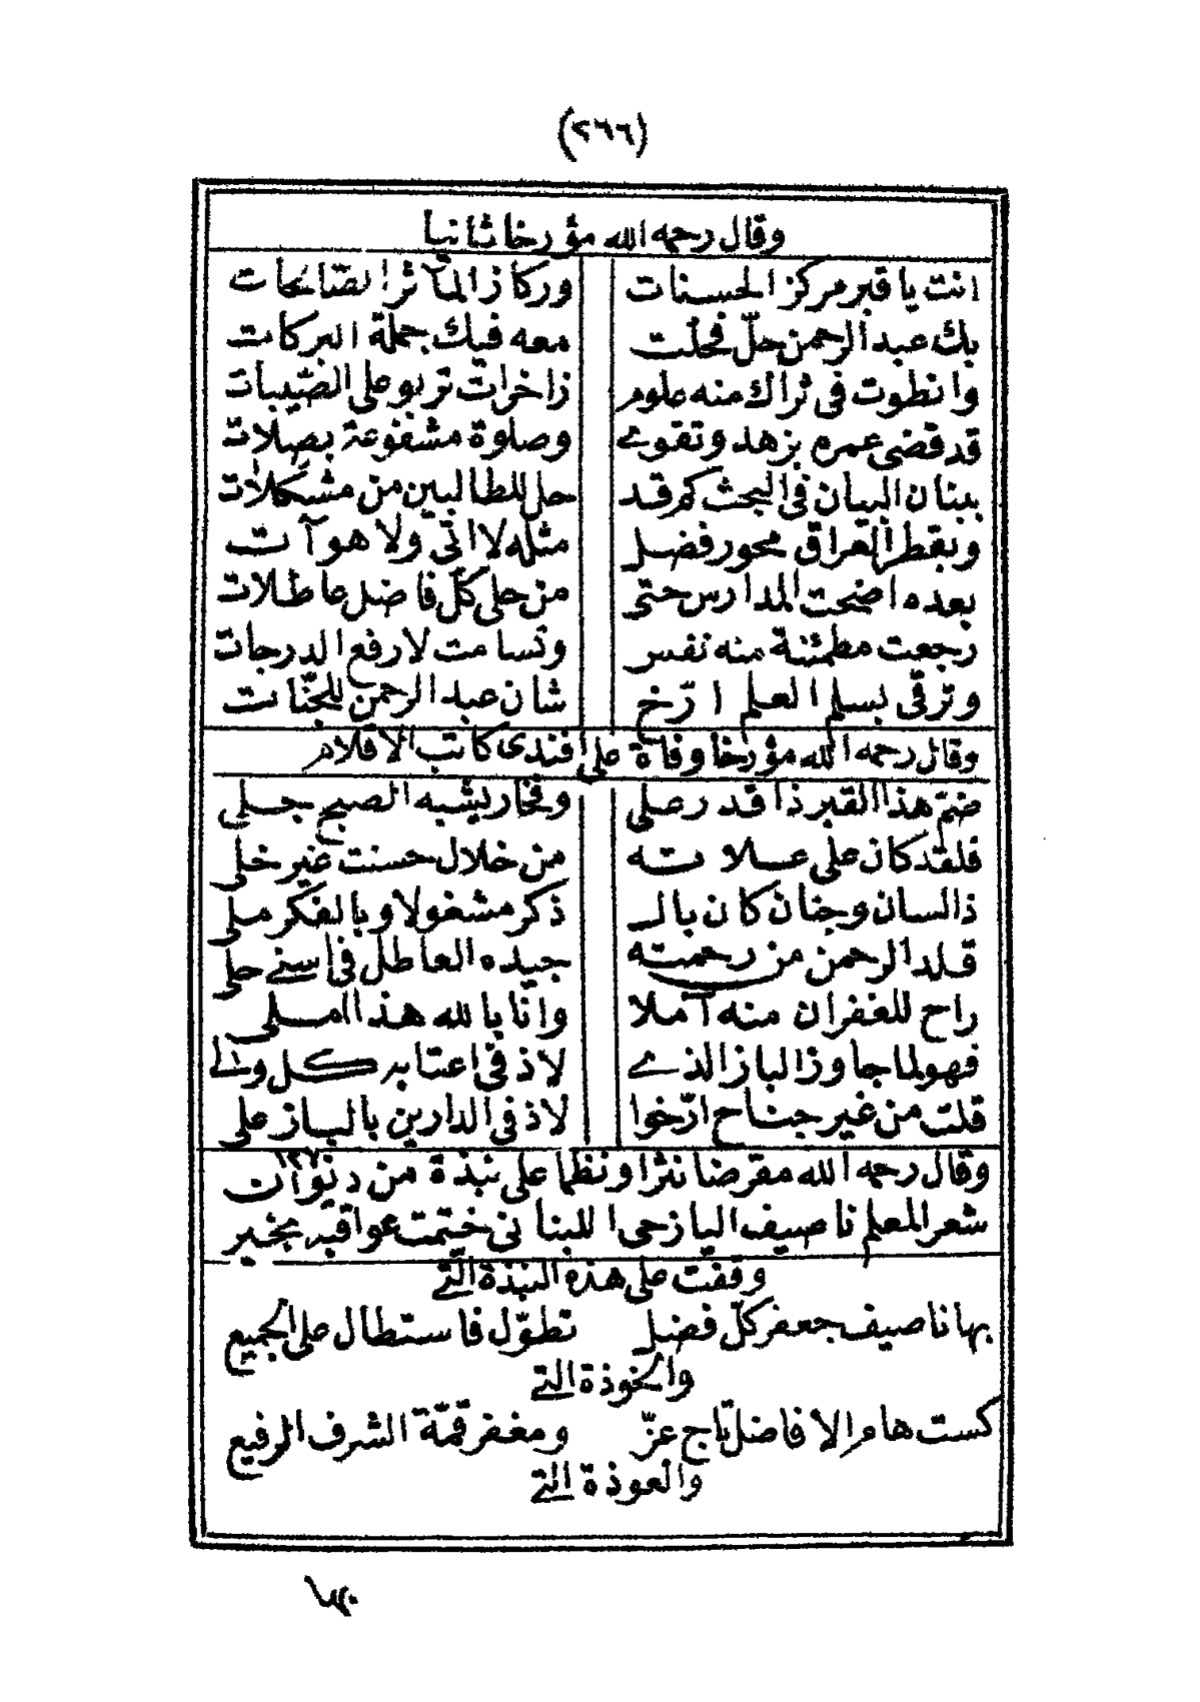 (٢٦٦)
وقال رحمه الله مؤرخا ثانيا
انت يا قبر مركز الحسنات وركاز المآثر الصالحات
بك عبد الرحمن حلّ فحلّت معه فيك جملة البركات
وانطوت فى ثراك منه علوم ذاخرات تربو على الصّيبات
قد قضى عمره بزهد وتقوى وصلوة مشفوعة بصلات
ببنان البيان فى البحث كم قد حل للطالبين من مشكلات
وبقطر العراق محور فضل مثله لا اتى ولا هو آت
بعده اضحت المدارس حتى من حلى كل فاضل عاطلات
رجعت مطمئنة منه نفس وتسامت لارفع الدرجات
وترقى بسلم العلم ارّخ شان عبد الرحمن للجنّات
وقال رحمه الله مؤرخا وفاة على افندى كاتب الاقلام
ضمّ هذا القبر ذا قدر على وفخار يشبه الصبح جلى
فلقد كان على علاته من خلال حسنت غير خلى
ذا لسان وجنان كان بالـ ذكر مشغولا وبالفكر ملى
قلد الرحمن من رحمته جيده العاطل فى اسنى حلى
راح للغفران منه آملا وانا بالله هذا املى
فهو لما جاوز الباز الذى لاذ فى اعتابه كل ولى
قلت من غير جناح ارّخوا لاذ فى الدارين بالباز على
١٢٧
وقال رحمه الله مقرضا نثرا ونظما على نبذة من ديوان
شعر المعلم ناصيف اليازجى اللبنانى ختمت عواقبه بخير
وقفت على هذه النبذة التى
بها ناصيف جعفر كلّ فضل تطوّل فاستطال على الجميع
والخوذة التى
كست هام الافاضل تاج عزّ ومغفر قمّة الشرف الرفيع
والعوذة التى